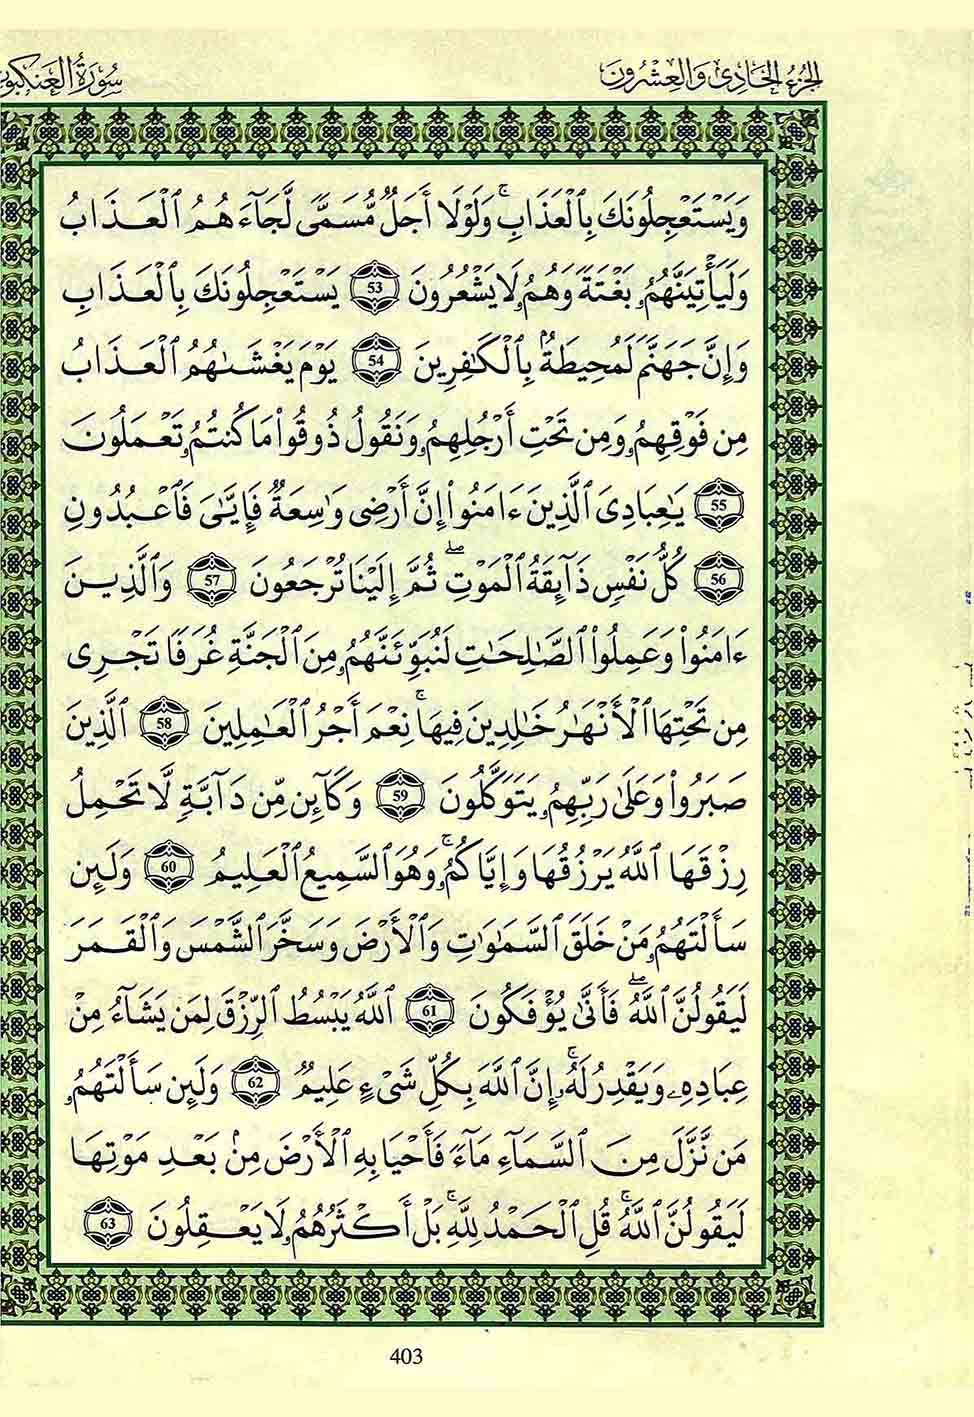 الجزء الحادي والعشرون
سورة العنكبوت
وَيَسْتَعْجِلُونَكَ بِٱلْعَذَابِ ۚ وَلَوْلَا أَجَلٌ مُّسَمًّى لَّجَآءَهُمُ ٱلْعَذَابُ
وَلَيَأْتِيَنَّهُمُۥ بَغْتَةً وَهُمُۥ لَا يَشْعُرُونَ 53 يَسْتَعْجِلُونَكَ بِٱلْعَذَابِ
وَإِنَّ جَهَنَّمَ لَمُحِيطَةٌۢ بِٱلْكَٰفِرِينَ 54 يَوْمَ يَغْشَىٰهُمُ ٱلْعَذَابُ
مِن فَوْقِهِمُۥ وَمِن تَحْتِ أَرْجُلِهِمُۥ وَنَقُولُ ذُوقُوا۟ مَا كُنتُمُۥ تَعْمَلُونَ
55 يَٰعِبَادِىَ ٱلَّذِينَ ءَامَنُوا۟ إِنَّ أَرْضِى وَٰسِعَةٌ فَإِيَّٰىَ فَٱعْبُدُونِ
56 كُلُّ نَفْسٍ ذَآئِقَةُ ٱلْمَوْتِ ۖ ثُمَّ إِلَيْنَا تُرْجَعُونَ 57 وَٱلَّذِينَ
ءَامَنُوا۟ وَعَمِلُوا۟ ٱلصَّٰلِحَٰتِ لَنُبَوِّئَنَّهُمُۥ مِنَ ٱلْجَنَّةِ غُرَفًا تَجْرِى
مِن تَحْتِهَا ٱلْأَنْهَٰرُ خَٰلِدِينَ فِيهَا ۚ نِعْمَ أَجْرُ ٱلْعَٰمِلِينَ 58 ٱلَّذِينَ
صَبَرُوا۟ وَعَلَىٰ رَبِّهِمُۥ يَتَوَكَّلُونَ 59 وَكَآئِن مِّن دَآبَّةٍ لَّا تَحْمِلُ
رِزْقَهَا ٱللَّهُ يَرْزُقُهَا وَإِيَّاكُمُۥ ۚ وَهُوَ ٱلسَّمِيعُ ٱلْعَلِيمُ 60 وَلَئِن
سَأَلْتَهُمُۥ مَنْ خَلَقَ ٱلسَّمَٰوَٰتِ وَٱلْأَرْضَ وَسَخَّرَ ٱلشَّمْسَ وَٱلْقَمَرَ
لَيَقُولُنَّ ٱللَّهُ ۖ فَأَنَّىٰ يُؤْفَكُونَ 61 ٱللَّهُ يَبْسُطُ ٱلرِّزْقَ لِمَن يَشَآءُ مِنْ
عِبَادِهِۦ وَيَقْدِرُ لَهُۥ ۚ إِنَّ ٱللَّهَ بِكُلِّ شَىْءٍ عَلِيمٌ 62 وَلَئِن سَأَلْتَهُمُۥ
مَن نَّزَّلَ مِنَ ٱلسَّمَآءِ مَآءً فَأَحْيَا بِهِ ٱلْأَرْضَ مِنۢ بَعْدِ مَوْتِهَا
لَيَقُولُنَّ ٱللَّهُ ۚ قُلِ ٱلْحَمْدُ لِلَّهِ ۚ بَلْ أَكْثَرُهُمُۥ لَا يَعْقِلُونَ 63
403